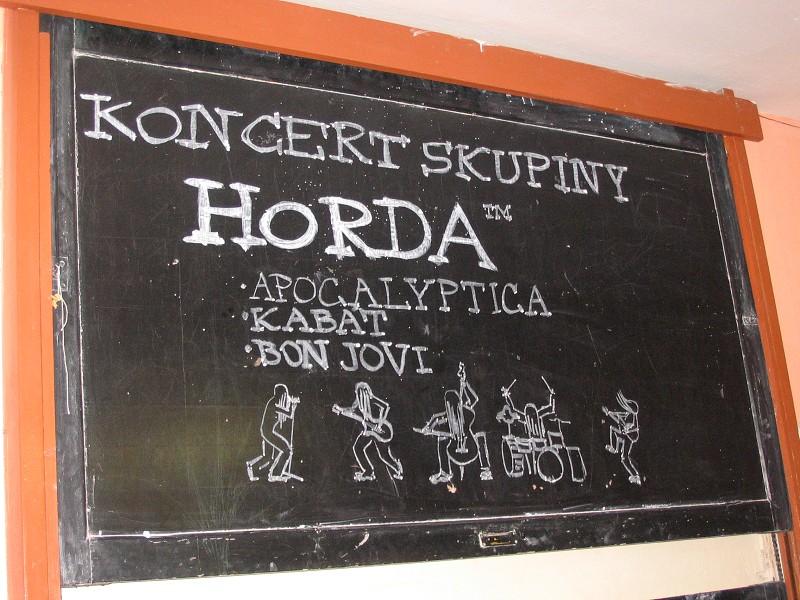 KONCERT SKUPINY
HORDA™
·APOCALYPTICA
·KABAT
·BON JOVI